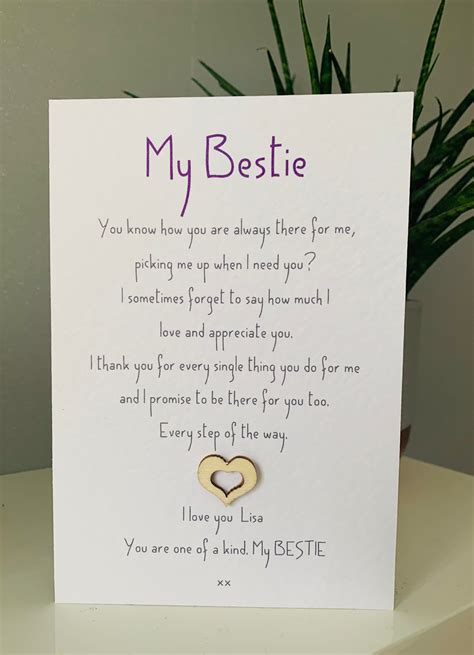 My Bestie
You know how you are always there for me,
picking me up when I need you?
I sometimes forget to say how much I
love and appreciate you.
I thank you for every single thing you do for me
and I promise to be there for you too.
Every step of the way.
I love you Lisa
You are one of a kind. My BESTIE
xx